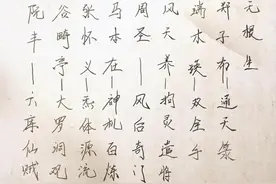 无根生
郑子布—通天箓
端木瑛—双全手
风天养—拘灵遣将
周圣—风后奇门
马本在—神机百炼
张怀义—炁体源流
谷畸亭—大罗洞观
阮丰—六库仙贼